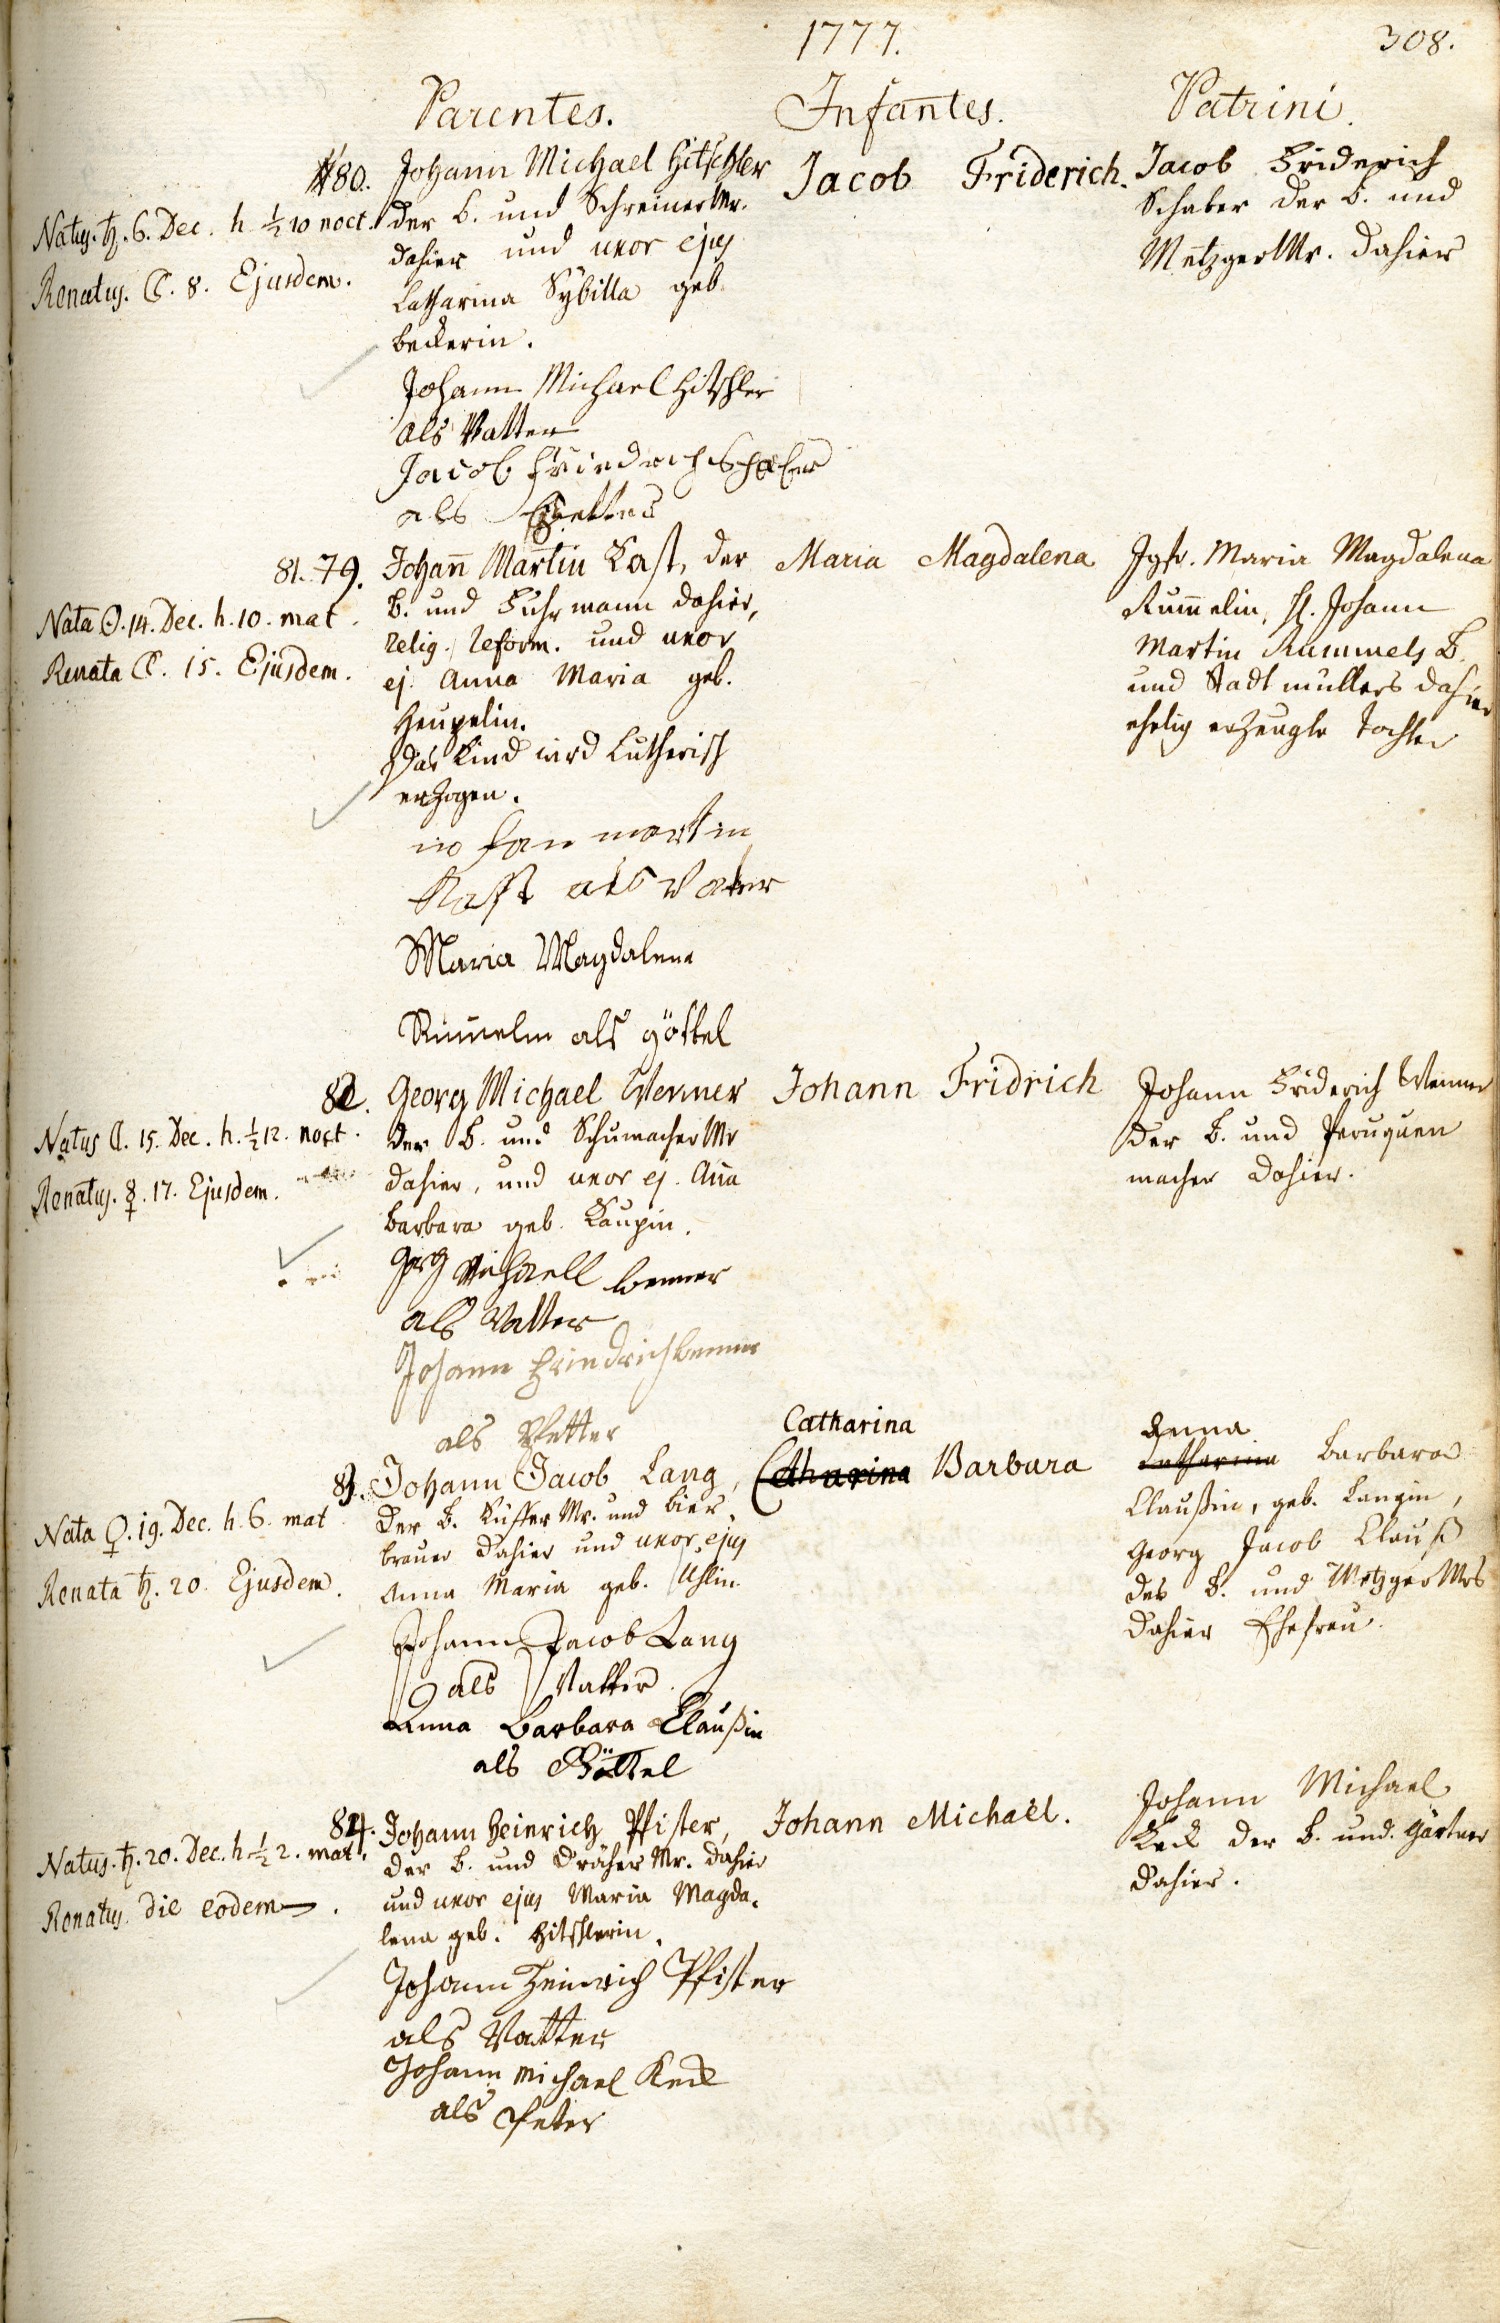 1777.
308.
Parentes. Infantes. Patrini.
80. Johann Michael Hitschler
der b. und Schreiner Mr.
dahier und uxor ejus
Catharina Sybilla geb.
beckerin.
Natus. ♄. 6. Dec. h. ½ 10 noct.
Renatus. ☾. 8. Ejusdem.
Johann Michael Hitschler
als Vatter
Jacob Friedrich Schaber
als Pfetter
Jacob Friderich.
Jacob Friderich
Schaber der b. und
Metzger Mr. dahier
81. 79. Johan̄ Martin Kast, der
b. und Fuhrmann dahier,
relig. reform. und uxor
ej. Anna Maria geb.
Heupelin.
das Kind wird Lutherisch
erzogen.
Nata ☉. 14. Dec. h. 10. mat.
Renata ☾. 15. Ejusdem.
martin
Kast als Vater
Maria Magdalena
Rum̄elin als göttel
Maria Magdalena
Jgfr. Maria Magdalena
Rum̄elin, H. Johann
Martin Rummels b.
und Stadtmüllers dahier
ehelig erzeugte Tochter
82. Georg Michael Wenner
der b. und Schumacher Mr
dahier, und uxor ej. An̄a
barbara geb. Kaupin.
Natus ☾. 15. Dec. h. ½ 12. noct.
Renatus. ☿. 17. Ejusdem.
Gorg Michaell Wenner
als Vatter
Johann Friedrich Wenner
als Pfetter
Johann Fridrich
Johann Friderich Wenner
der b. und Peruquen
macher dahier.
83. Johann Jacob Lang,
der b. Küffer Mr. und bier
brauer dahier und uxor ejus
Anna Maria geb. Uhlin.
Nata ♀. 19. Dec. h. 6. mat
Renata ♄. 20. Ejusdem.
Johann Jacob Lang
als Vatter.
Anna Barbara Claußin
als Göttel
Catharina
Catharina Barbara
Anna
Catharina barbara
Claußin, geb. Langin,
Georg Jacob Clauß
des b. und Metzger Mrs
dahier Ehefrau.
84. Johann Heinrich Pfister,
der b. und Dräher Mr. dahier
und uxor ejus Maria Magda-
lena geb. Hitschlerin.
Natus. ♄. 20. Dec. h. ½ 2. mat.
Renatus. die eodem.
Johann Heinrich Pfister
als Vatter
Johann Michael Keck
als Peter
Johann Michael.
Johann Michael
Keck der b. und Gärtner
dahier.